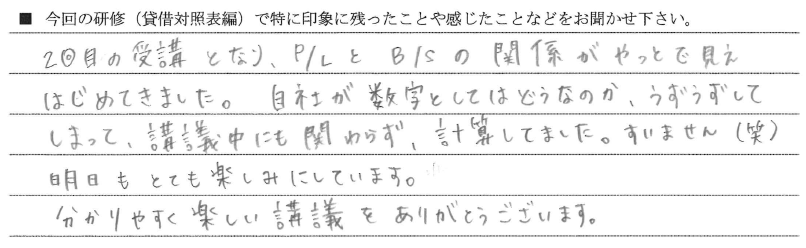 ■ 今回の研修（貸借対照表編）で特に印象に残ったことや感じたことなどをお聞かせ下さい。
2回目の受講となり、P/LとB/Sの関係がやっとで見え
はじめてきました。自社が数字としてはどうなのか、うずうずして
しまって、講議中にも関わらず、計算してました。すいません（笑）
明日もとても楽しみにしています。
分かりやすく楽しい講議をありがとうございます。